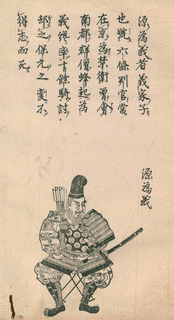 源為義者義家子
也號六條判官嘗
在京為禁衛會
南都群僧蜂起為
義十餘騎
却之保元之変不
得志而死
源為義